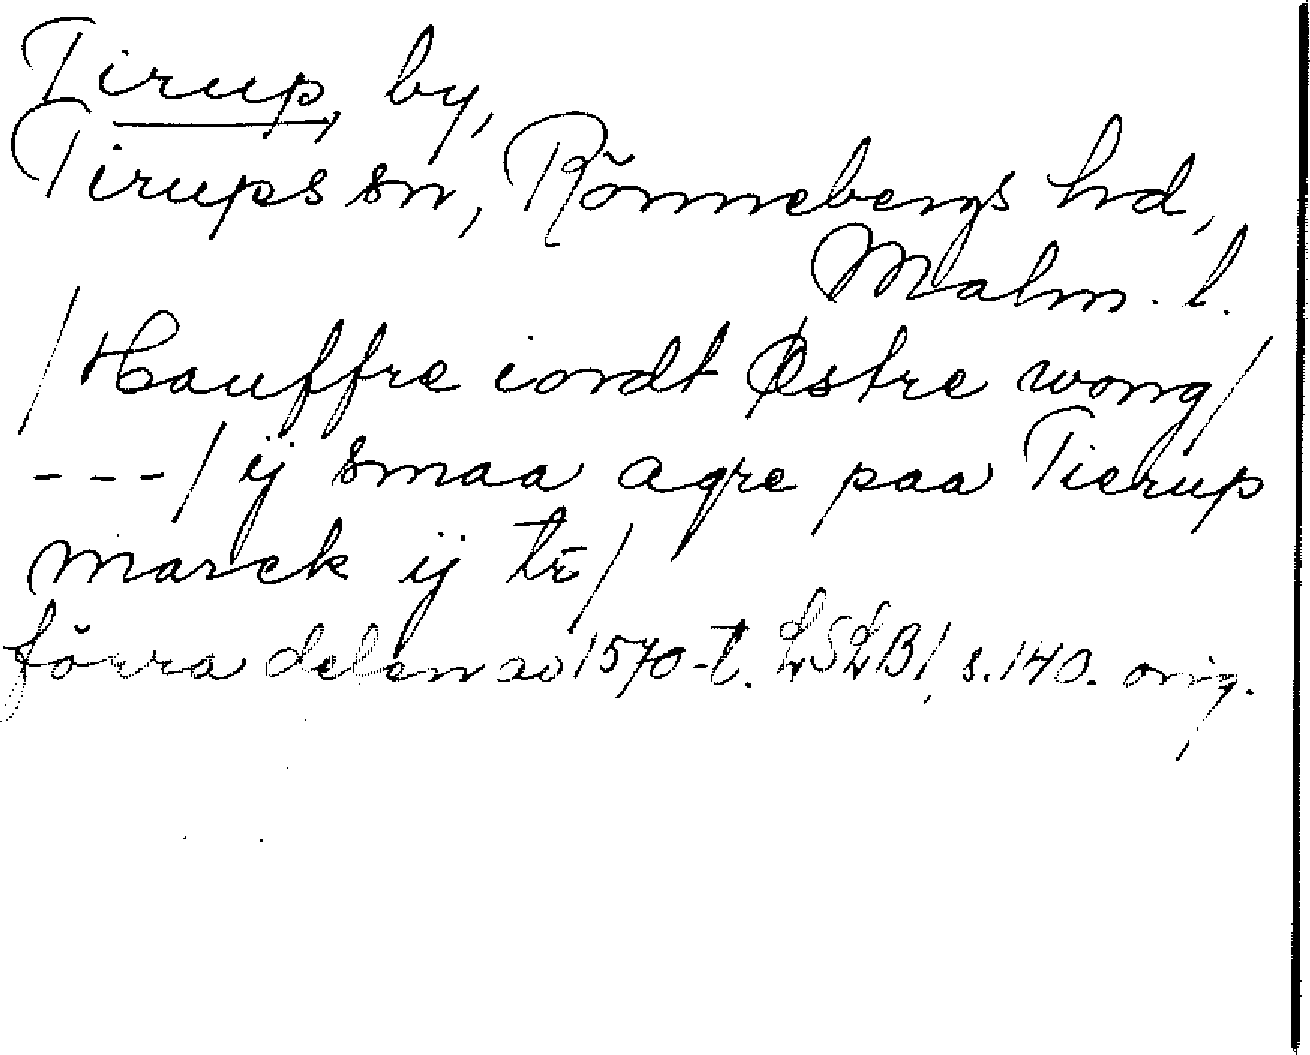 Tirup, by,
Tirups sn, Rönnebergs hd,
Malm. l.
/Hauffre iordt Østre wong/
---/ ij smaa agre paa Tierup
marck ij tr̄/
förra delen av 1570-t. LSLB1, s. 140. orig.